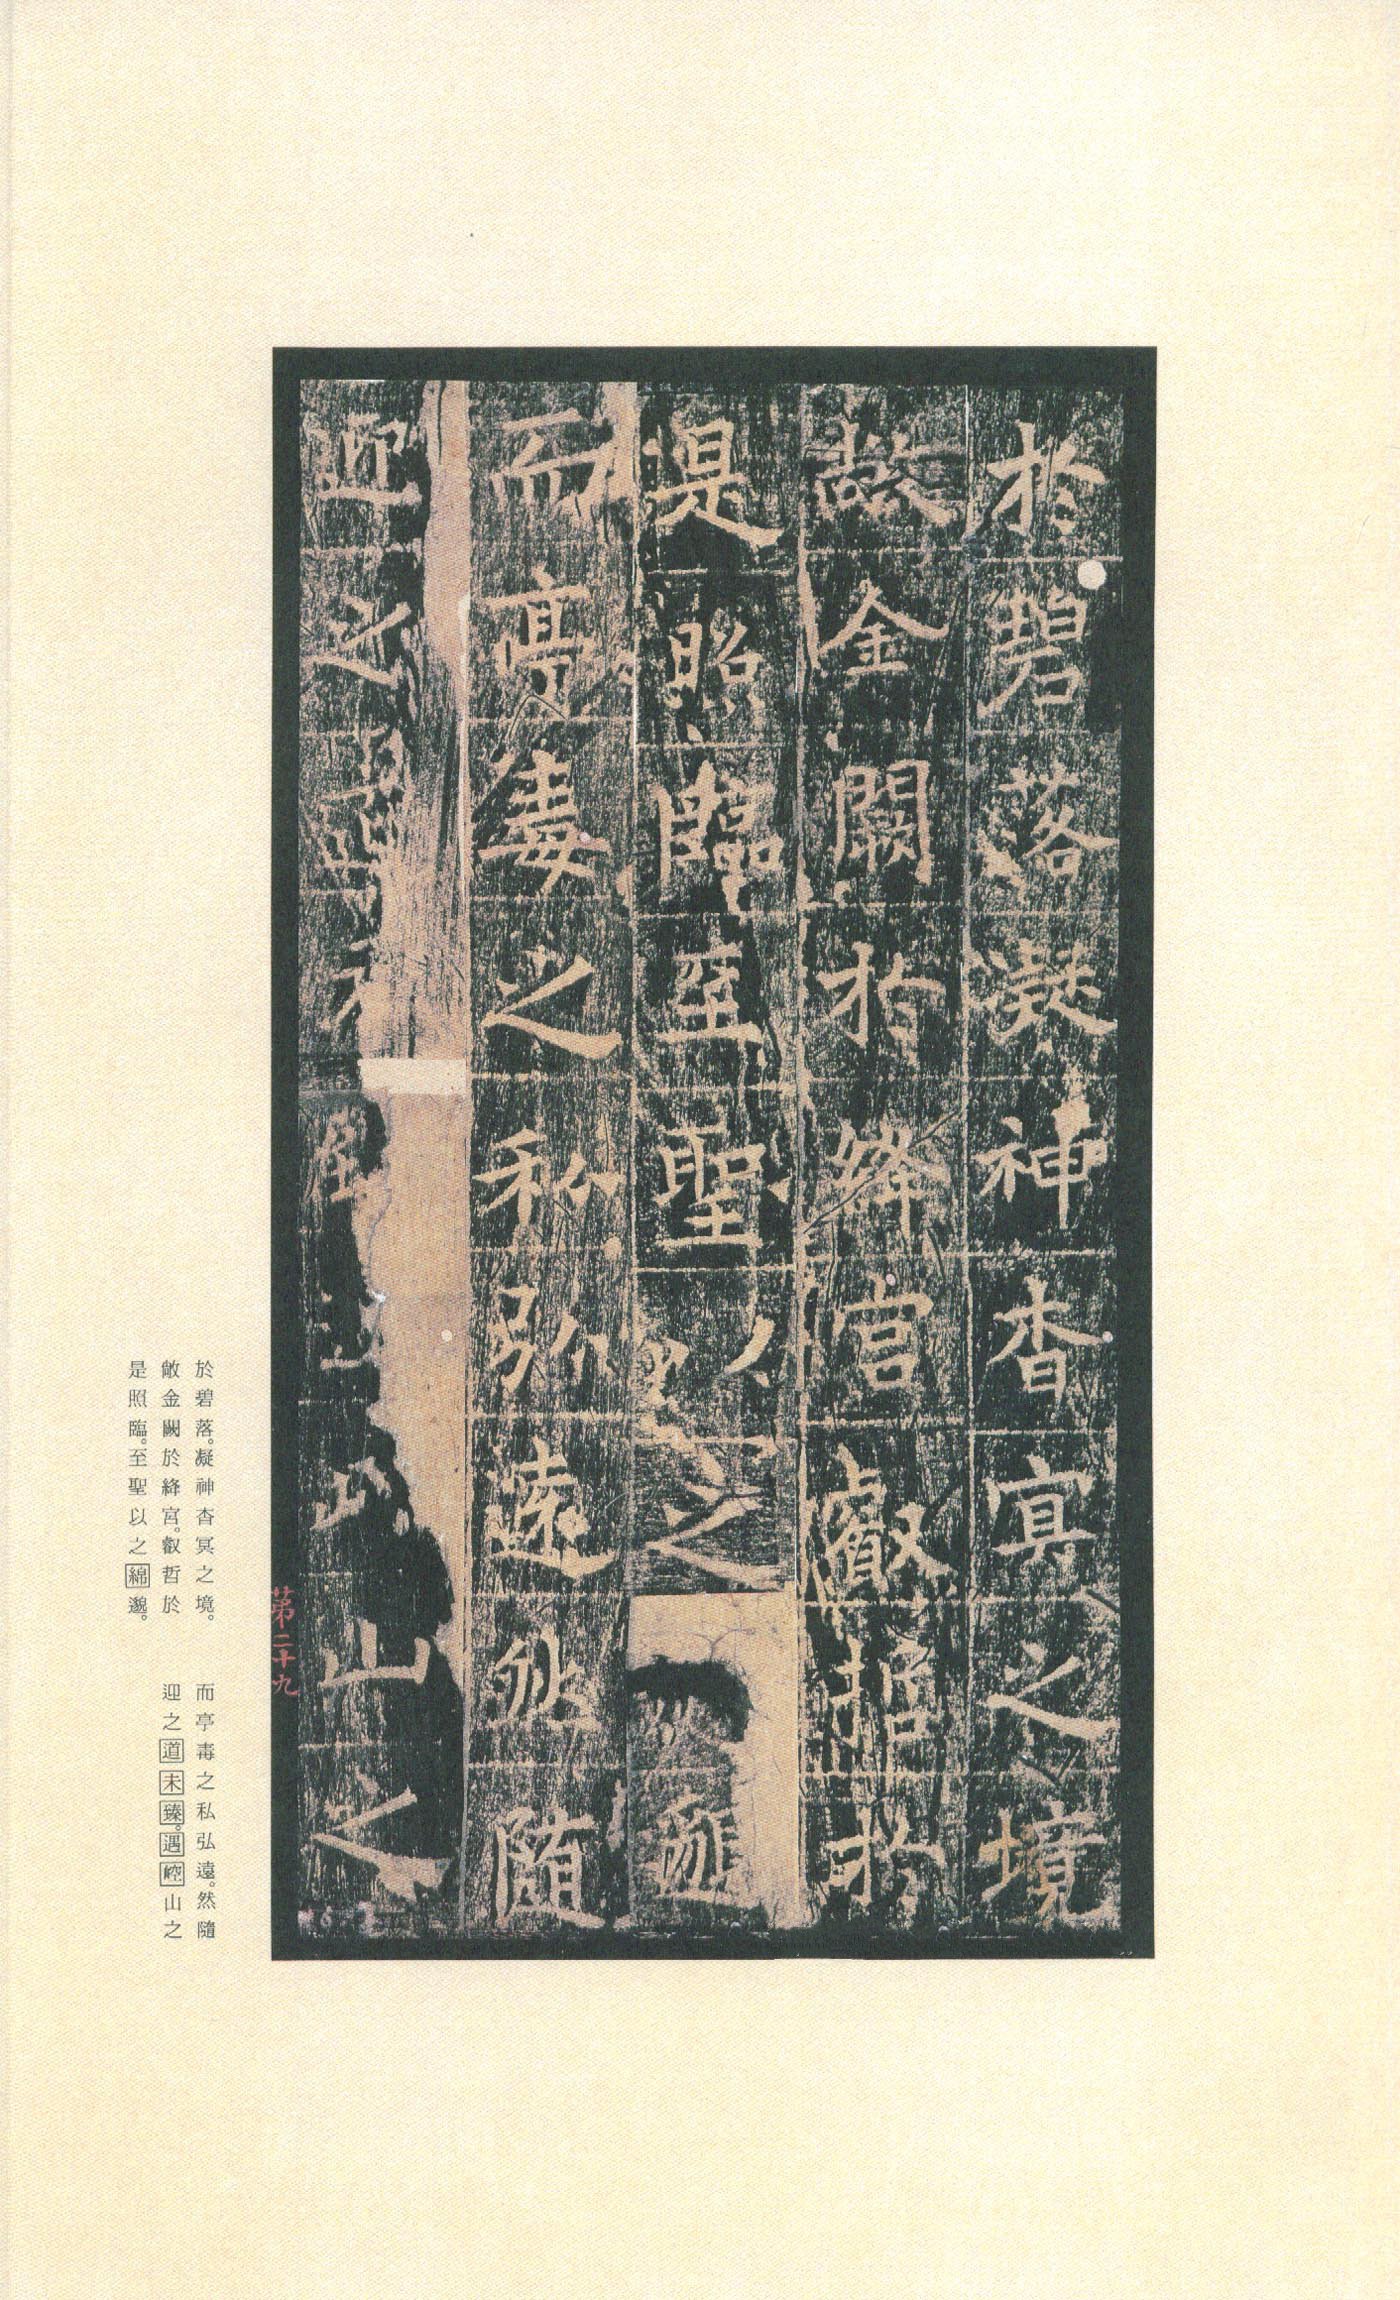 於碧落凝神杳冥之境
敞金闕於絳宮叡哲於
是照臨至聖以之邈
而亭毒之私弘遠然隨
迎之山之
第二十九
於碧落。凝神杳冥之境。
敞金闕於絳宮。叡哲於
是照臨。至聖以之綿邈。
而亭毒之私弘遠。然隨
迎之道未臻。遇崆山之